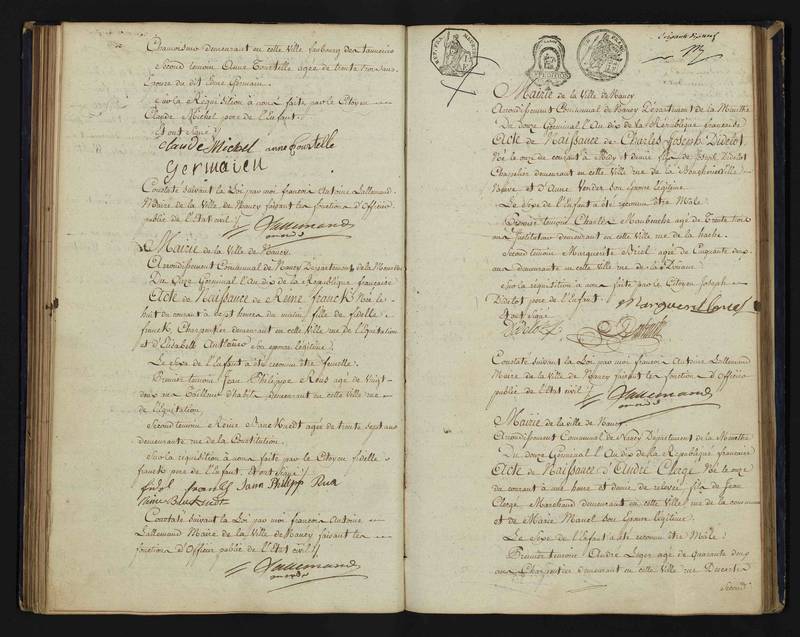 Chamoiseur demeurant en cette Ville faubourg des tanneries
Second temoin Anne Tourtelle agée de trente trois ans
Epouse du dit Germain.
Sur la Réquisition à nous faite par le Citoyen
Claude Michel pere de l'Enfant.
Et ont signé
claude Michel anne tourtelle
Germain
Constaté suivant la Loi par moi françois Antoine Lallemand
Maire de la Ville de Nancy faisant les fonction d'Officier
public de l'Etat civil
Lallemand
Mairie de la Ville de Nancy
Arrondissement Communal de Nancy Département de la Meurthe
Du douze Germinal l'An dix de la République française
Acte de Naissance de Reine franck Née le
huit du courant à sept heures du matin, fille de fidelle
franck, Charpentier demeurant en cette Ville rue de l'Equitation
et d'Elisabeth son epouse légitime
Le Sexe de l'Enfant a été reconnu être femelle.
Premier temoin Jean Philippe agé de Vingt
deux ans Tailleur d'habits demeurant en cette Ville rue
de l'Equitation.
Second temoin Reine agée de trente sept ans
demeurante rue de la Constitution.
Sur la réquisition à nous faite par le Citoyen fidelle
franck pere de l'Enfant. Et ont signé
fidel franck Philipp
Constaté suivant la Loi par moi françois Antoine
Lallemand Maire de la Ville de Nancy faisant les
fonction d'Officier public de l'Etat civil
Lallemand
Mairie de la Ville de Nancy
Arrondissement Communal de Nancy Département de la Meurthe
Du douze Germinal l'An dix de la République française
Acte de Naissance de Charles Joseph Didelot
Né le onze du courant à Midy et demie fils de Joseph Didelot
Chapelier demeurant en cette Ville rue de la Boucherie Ville
Neuve et d'Anne son Epouse légitime.
Le Sexe de l'Enfant a été reconnu être Mâle.
Premier temoin Charles agé de Trente trois
ans Instituteur demeurant en cette Ville rue de la hache.
Second temoin Marguerite Briel agée de Cinquante deux
ans demeurante en cette Ville rue de la Douane
Sur la réquisition à nous faite par le Citoyen Joseph
Didelot pere de l'Enfant.
Et ont signé
Didelot
Constaté suivant la Loi par moi françois Antoine Lallemand
Maire de la Ville de Nancy faisant les fonction d'Officier
public de l'Etat civil
Lallemand
Mairie de la ville de Nancy
Arrondissement Communal de Nancy Département de la Meurthe
Du douze Germinal l'An dix de la République française
Acte de Naissance d'André Clerge Né le onze
du courant à une heure et demie de relevée fils de Jean
Clerge Marchand demeurant en cette Ville rue de la commune
et de Marie Manel son Epouse légitime.
Le Sexe de l'Enfant a été reconnu être Mâle.
Premier temoin André Leger agé de quarante deux
ans Charpentier demeurant en cette Ville rue
Second